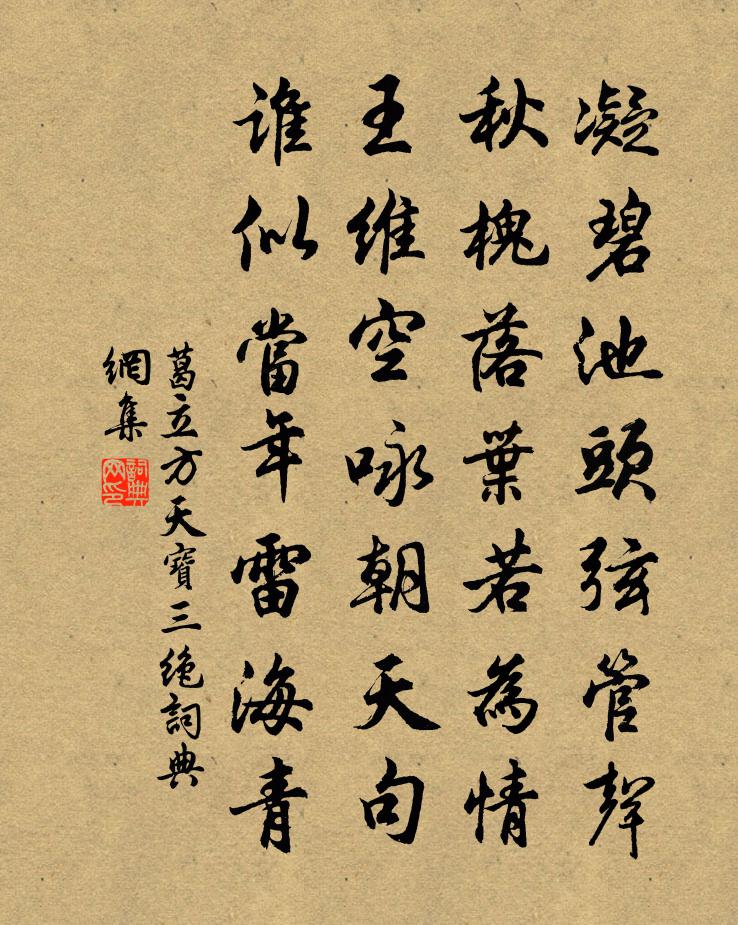 凝碧池頭弦管聲
秋槐落葉若為情
王維空咏朝天句
誰似當年雷海青
葛立方天寶三絶詞典
網集
詞典網印